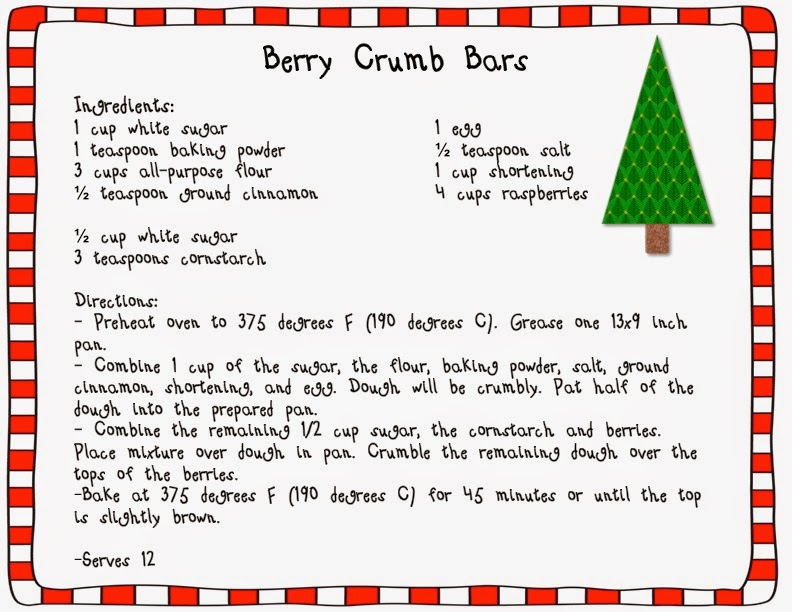 Berry Crumb Bars
Ingredients:
1 cup white sugar
1 teaspoon baking powder
3 cups all-purpose flour
½ teaspoon ground cinnamon
1 egg
½ teaspoon salt
1 cup shortening
4 cups raspberries
½ cup white sugar
3 teaspoons cornstarch
Directions:
- Preheat oven to 375 degrees F (190 degrees C). Grease one 13x9 inch
pan.
- Combine 1 cup of the sugar, the flour, baking powder, salt, ground
cinnamon, shortening, and egg. Dough will be crumbly. Pat half of the
dough into the prepared pan.
- Combine the remaining 1/2 cup sugar, the cornstarch and berries.
Place mixture over dough in pan. Crumble the remaining dough over the
tops of the berries.
-Bake at 375 degrees F (190 degrees C) for 45 minutes or until the top
is slightly brown.
-Serves 12